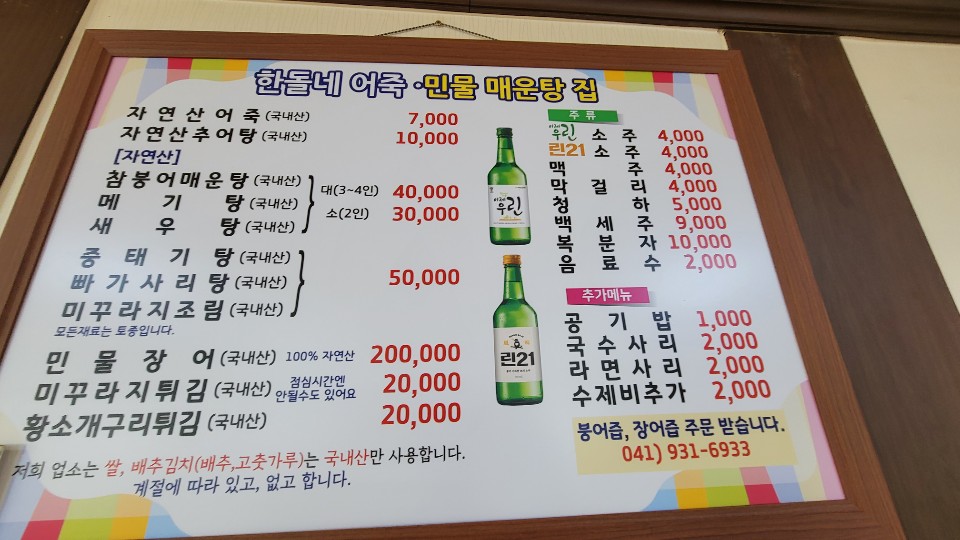 한돌네 어죽·민물 매운탕 집
자연산어죽 (국내산) 7,000
자연산추어탕 (국내산) 10,000
[자연산]
참붕어매운탕 (국내산)
메기탕 (국내산)
새우탕 (국내산)
대(3~4인) 40,000
소(2인) 30,000
중태기탕 (국내산)
빠가사리탕 (국내산)
미꾸라지조림 (국내산)
50,000
모든재료는 토종입니다.
민물장어 (국내산) 100% 자연산 200,000
미꾸라지튀김 (국내산) 점심시간엔 안될수도 있어요 20,000
황소개구리튀김 (국내산) 20,000
저희 업소는 쌀, 배추김치(배추,고춧가루)는 국내산만 사용합니다.
계절에 따라 있고, 없고 합니다.
이제
우린
린21
주류
이제우린 소주 4,000
린21 소주 4,000
맥주 4,000
막걸리 4,000
청하 5,000
백세주 9,000
복분자 10,000
음료수 2,000
추가메뉴
공기밥 1,000
국수사리 2,000
라면사리 2,000
수제비추가 2,000
붕어즙, 장어즙 주문 받습니다.
041) 931-6933